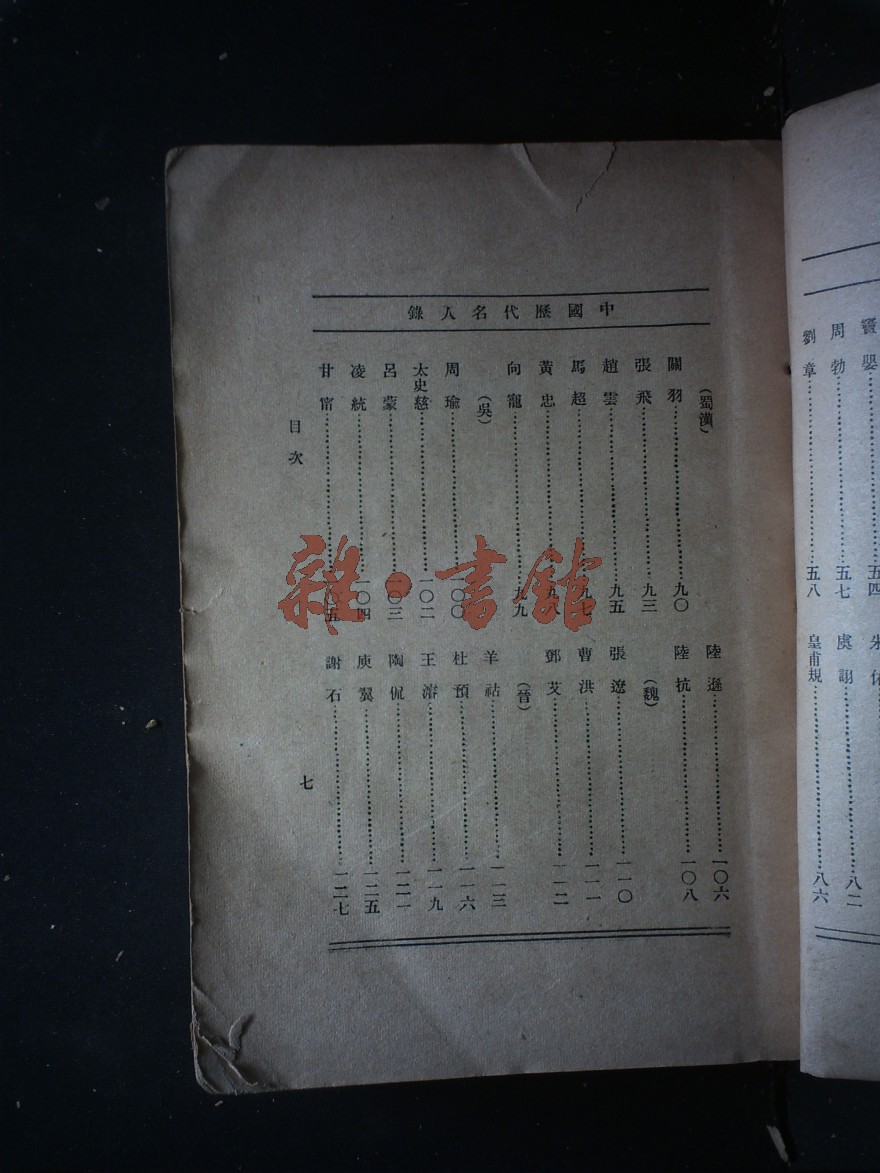 中國歷代名人錄
(蜀漢)
關羽……九〇
張飛……九三
趙雲……九五
馬超……九七
黃忠……九八
向寵……九九
(吳)
周瑜……一〇〇
太史慈……一〇二
呂蒙……一〇三
凌統……一〇四
甘甯……一〇五
陸遜……一〇六
陸抗……一〇八
(魏)
張遼……一一〇
曹洪……一一一
鄧艾……一一二
(晉)
羊祜……一一三
杜預……一一六
王濬……一一九
陶侃……一二一
庾翼……一二五
謝石……一二七
目次
七
竇嬰……五四
周勃……五七
劉章……五八
虞詡……八二
皇甫規……八六
雜·書館